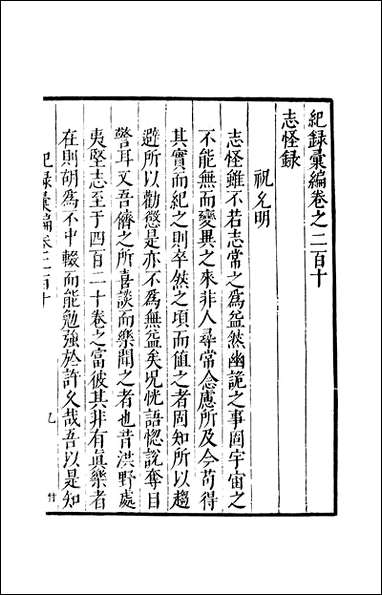 紀録彙編卷之二百十
志怪録
祝允明
志怪雖不若志常之爲益然幽詭之事固宇宙之
不能無而變異之來非人尋常念慮所及今苟得
其實而紀之則卒然之頃而値之者固知所以趨
避所以勸懲是亦不爲無益矣况恍語惚說奪目
警耳又吾儕之所喜談而樂聞之者也昔洪野處
夷堅志至于四百二十卷之富彼其非有眞樂者
在則胡爲不中輟而能勉強於許久哉吾以是知
紀録彙編卷二百十
九